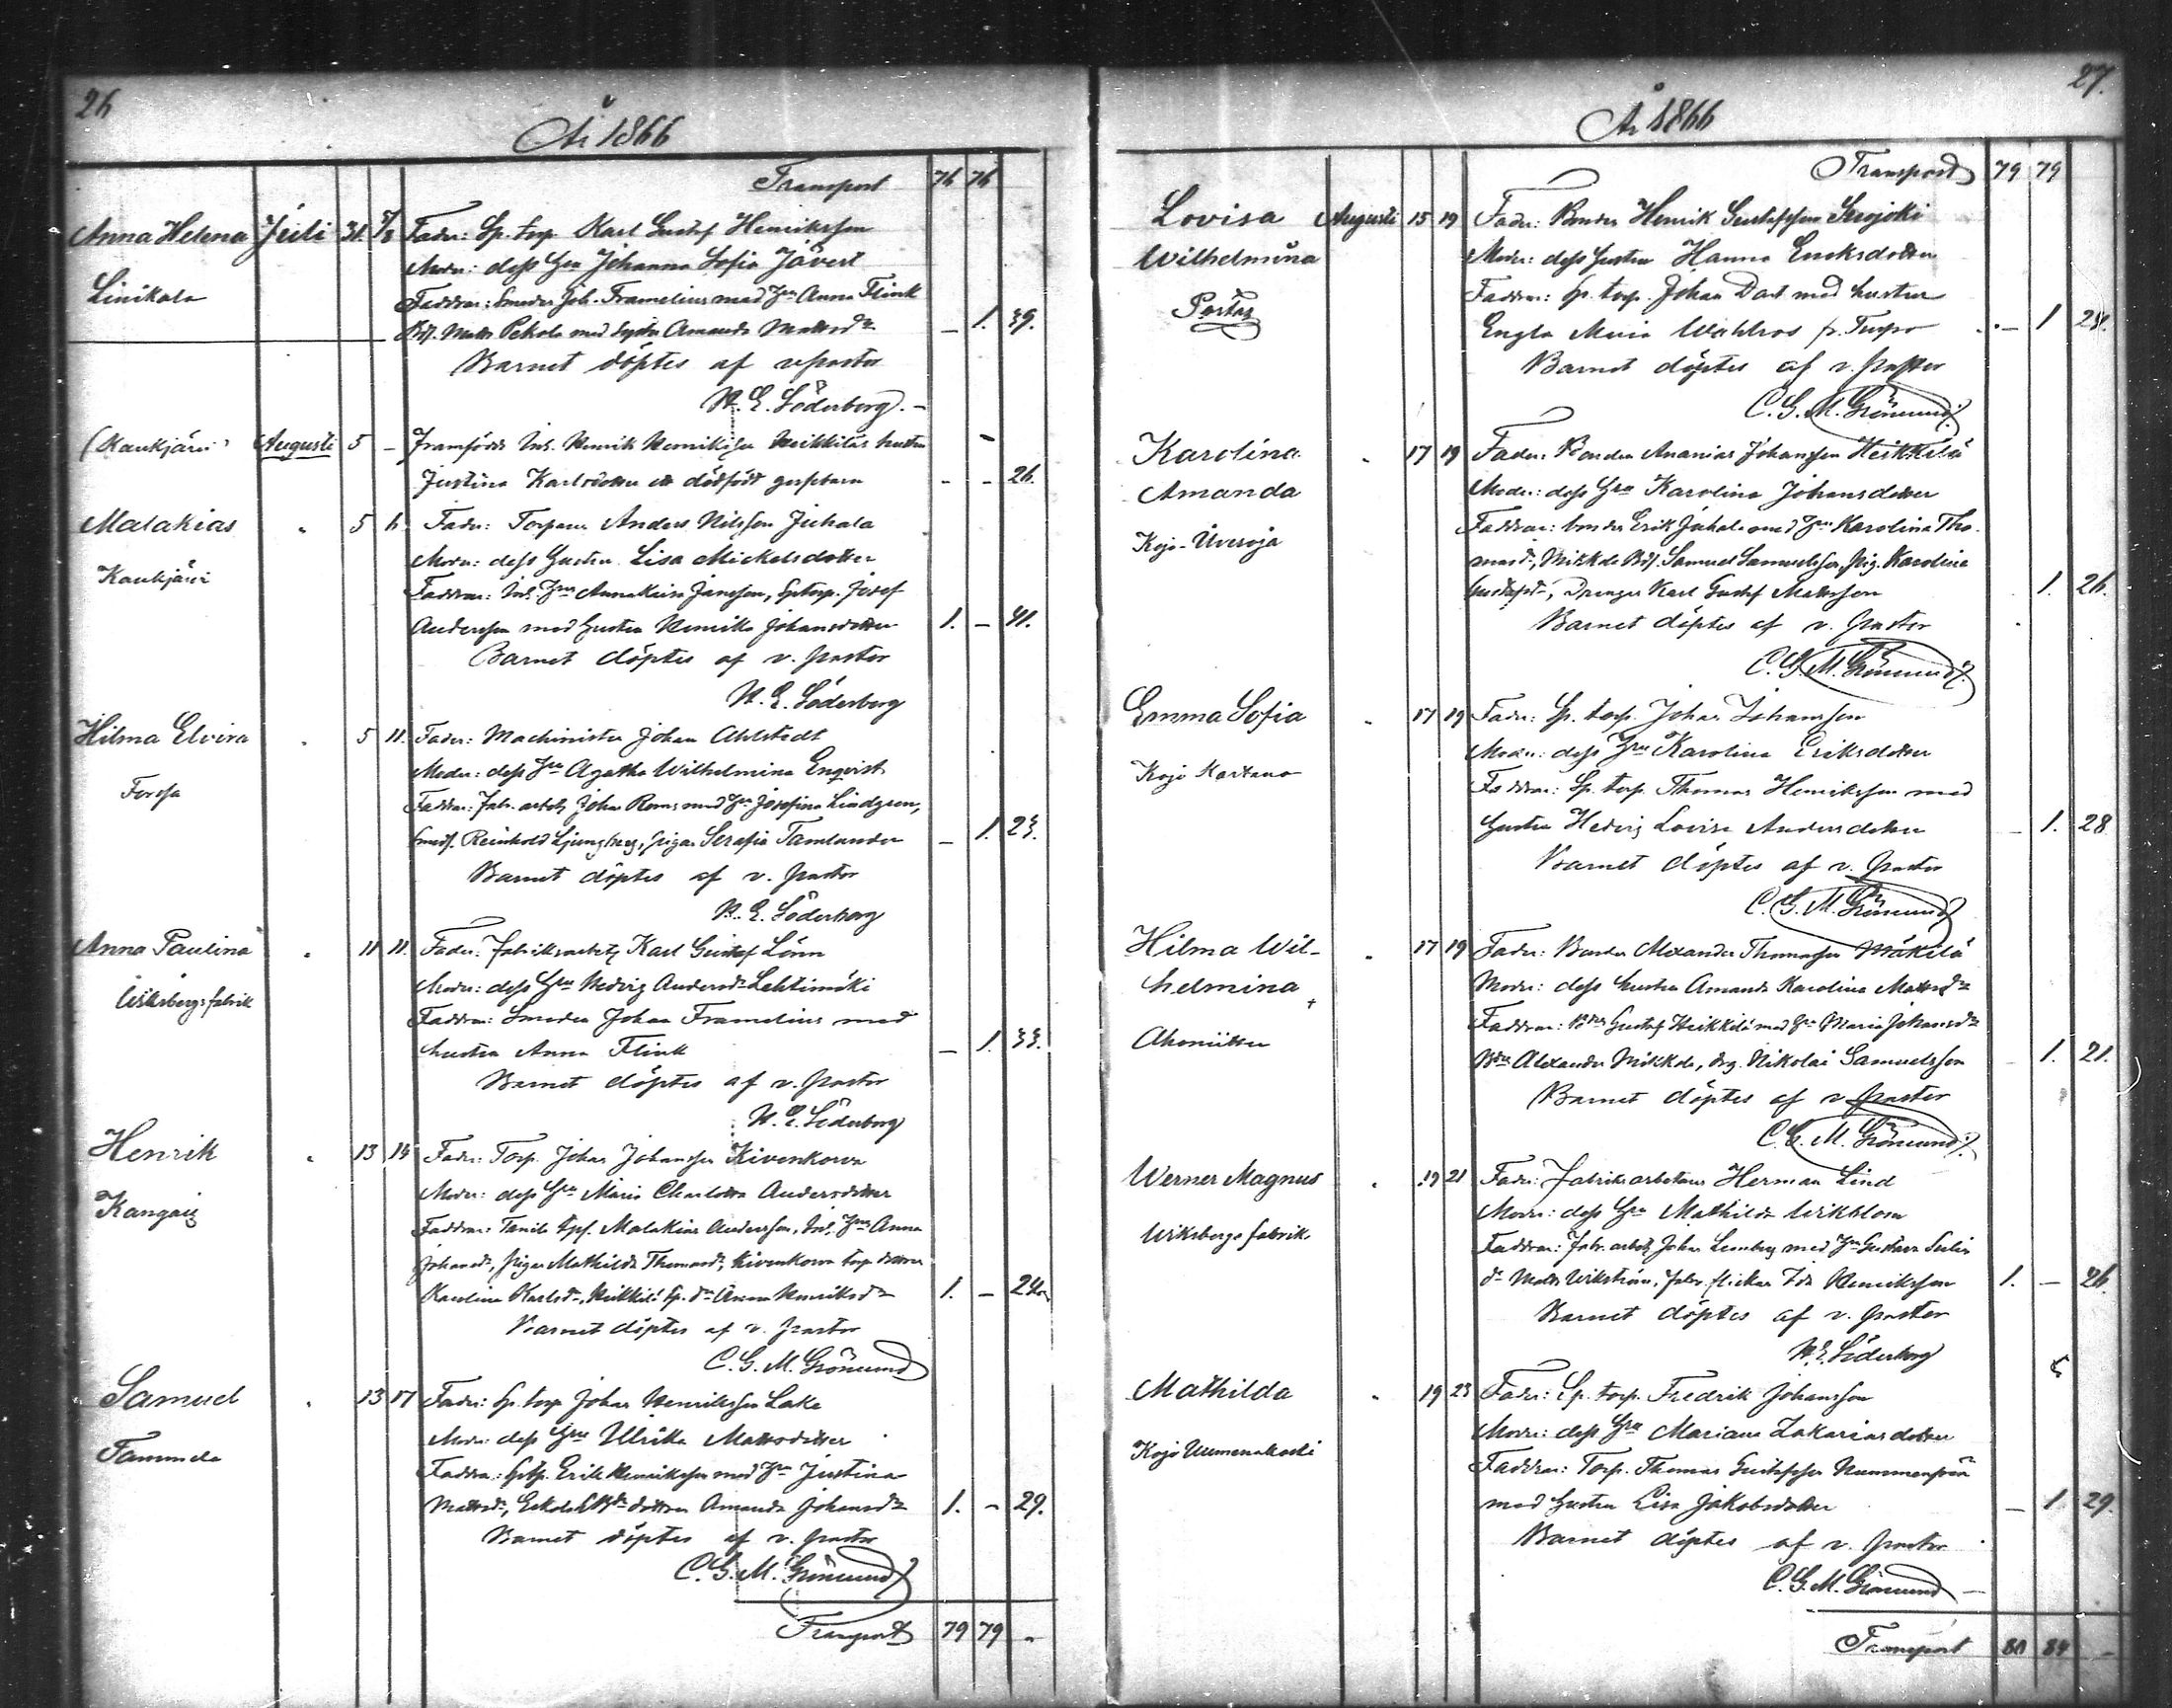 26
År 1866
Transport 76 76
Anna Helena Juli 31 Fader: Sp. torp. Karl Gustaf Henriksson
Moder: dess Hru Johanna Sofia Jävert
Linikala Faddrar: Smeden Joh. Framelius med Hru Anna Flink
Matts Pekola med Amanda Mattsdr – 1. 39.
Barnet döptes af v pastor
N. E. Söderberg.
Kaukjärvi Augusti 5 – Framfödde Inh. Henrik Henrikss. Heikkiläs hustru –
Justina Karlsdotter ett dödfödt gossebarn - - 26.
Malakias " 5 6. Fader: Torparen Anders Nilsson Juhala
Moder: dess Hustru Lisa Mickelsdotter
Kaukjärvi Faddrar: Inh. Jansson, Sp torp. Josef
Andersson med Hustru Henrika Johansdotter 1. – 41.
Barnet döptes af v. pastor
N. E. Söderberg
Hilma Elvira " 5 11. Fader: Machinisten Johan Ahlstedt
Moder: dess Hru Agatha Wilhelmina Enqvist
Forssa Faddrar: Fabr. arbet. Johan Roms med Hru Josefina Lindgren,
Reinhold Ljungberg, pigan Serafia Tamlander – 1. 23.
Barnet döptes af v. pastor
N. E. Söderberg
Anna Paulina " 11 11. Fader: Fabriksarbet. Karl Gustaf Lönn
Moder: dess Hru Hedvig Andersdr Lehtimäki
Wiksbergs fabrik Faddrar: Smeden Johan Framelius med
hustru Anna Flink – 1. 33.
Barnet döptes af v. pastor
N. E. Söderberg
Henrik " 13 14 Fader: Torp. Johan Johansson Kivenkorva
Moder: dess Hru Maria Charlotta Andersdotter
Kangais Faddrar: Malakias Andersson, Inh. Hru Anna
Johansdr, Pigan Mathilda Thomasdr, Kivenkorva torp. dotter
Karolina Karlsdr, Heikkilä Sp. dr Anna Henriksdr 1. – 24.
Barnet döptes af v. pastor
C. G. M. Grönmund
Samuel " 13 17 Fader: Sp. torp Johan Henriksson Lake
Moder: dess Hru Ulrika Mattsdotter
Tammela Faddrar: Sptp. Erik Henriksson med Hru Justina
Mattsdr, dotter Amanda Johansdr 1. – 29.
Barnet döptes af v. pastor
C. G. M. Grönmund
Transport 79 79 –
27.
År 1866
Transport 79 79
Lovisa Augusti 15 19 Fader: Bonden Henrik Gustafsson Serojoki
Wilhelmina Moder: dess hustru Hanna Ericksdotter
Faddrar: Sp. torp. Johan Dart med hustru
Portas Engla Maria Wahlros fr. Turpo – 1 24.
Barnet döptes af v. pastor
C. G. M. Grönmund
Karolina " 17 19 Fader: Bonden Ananias Johansson Heikkilä
Amanda Moder: dess Hru Karolina Johansdotter
Faddrar: bonden Erik Juhala med Hru Karolina Tho-
Kojo-Uvesoja masdr, Mikkola Samuel Samuelsson, pig. Karolina
Gustafsdr, Drengen Karl Gustaf Mattsson 1. 26.
Barnet döptes af v. pastor
C. G. M. Grönmund
Emma Sofia " 17 19 Fader: Sp. torp. Johan Johansson
Moder: dess Hru Karolina Eriksdotter
Kojo Kartano Faddrar: Sp. torp. Thomas Henriksson med
Hustru Hedvig Lovisa Andersdotter – 1. 28
Barnet döptes af v. pastor
C. G. M. Grönmund
Hilma Wil- " 17 19 Fader: Bonden Alexander Thomasson Mäkilä
helmina + Moder: dess hustru Amanda Karolina Mattsdr
Faddrar: Bden Gustaf Heikkilä med Hru Maria Johansdr
Bden Alexander Mikkola, drg. Nikolai Samuelsson – 1. 21.
Barnet döptes af v pastor
C. G. M. Grönmund
Werner Magnus " 19 21 Fader: Fabriksarbetaren Herman Lind
Moder: dess Hru Mathilda Wikblom
Wiksbergs fabrik Faddrar: Fabr. arbet. Johan Lemberg med Hru Gustava
Matts Wikström, fabr. flickan Ida Henriksson 1. – 26.
Barnet döptes af v. pastor
N. E. Söderberg
Mathilda " 19 23 Fader: Sp. torp. Fredrik Johansson
Moder: dess Hru Mariana Zakariasdotter
Faddrar: Torp. Thomas Gustafsson Nummenpää
med hustru Lisa Jakobsdotter – 1 29.
Barnet döptes af v. pastor
C. G. M. Grönmund
Transport 80 84 –